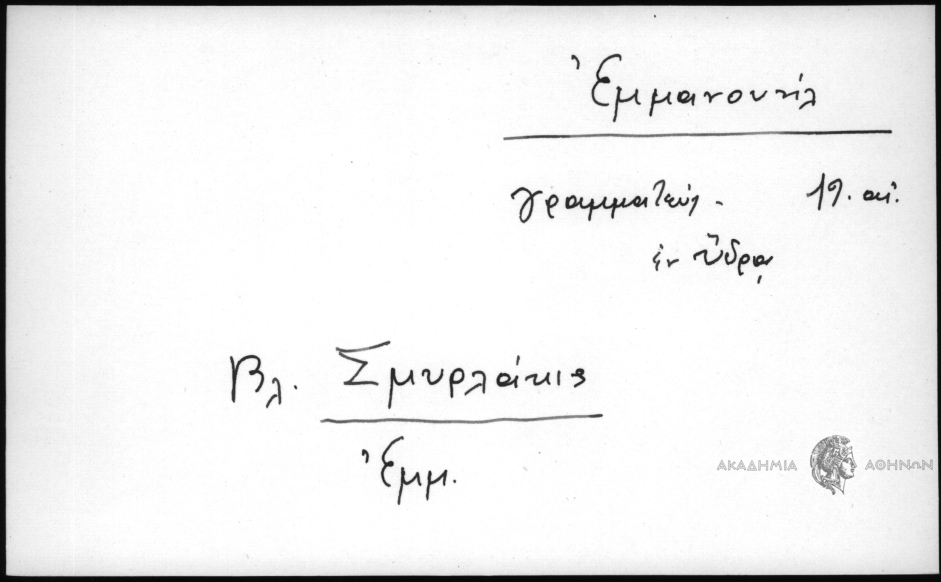 Ἐμμανουήλ
γραμματεύς. 19. αἰ.
ἐν Ὕδρᾳ
Βλ. Σμυρλάκις
Ἐμμ.
ΑΚΑΔΗΜΙΑ ΑΘΗΝΩΝ